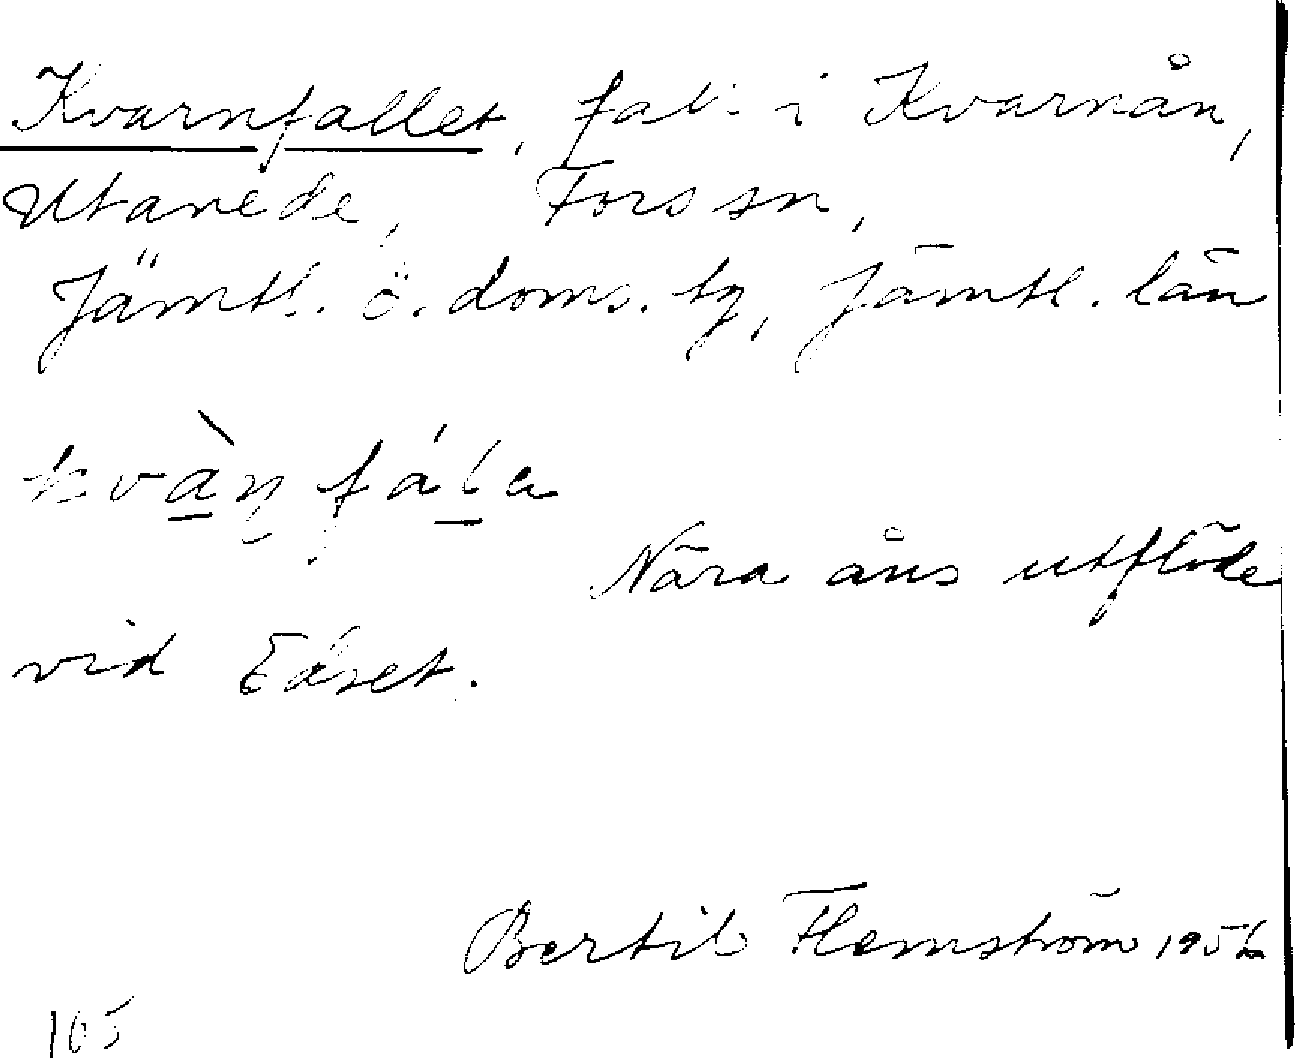 Kvarnfallet, fall i Kvarnån,
Utanede, Fors sn,
Jämtl. ö. doms. tg, Jämtl. län
kvàn fála
Nära åns utflöde
vid Edset.
Bertil Flemström 1956
105